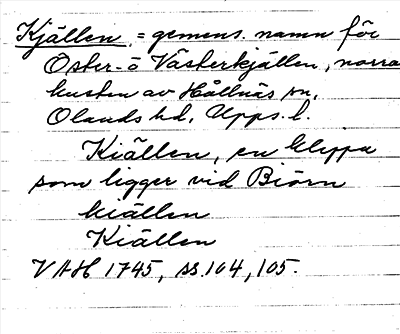 Kjällen = gemens. namn för
Öster- o Västerkjällen, norra
kusten av Hållnäs sn,
Olands hd, Upps. l.
Kiällen, en klippa
som ligger vid Biörn
kiällen
Kiällen
VAH 1745, ss. 104, 105.